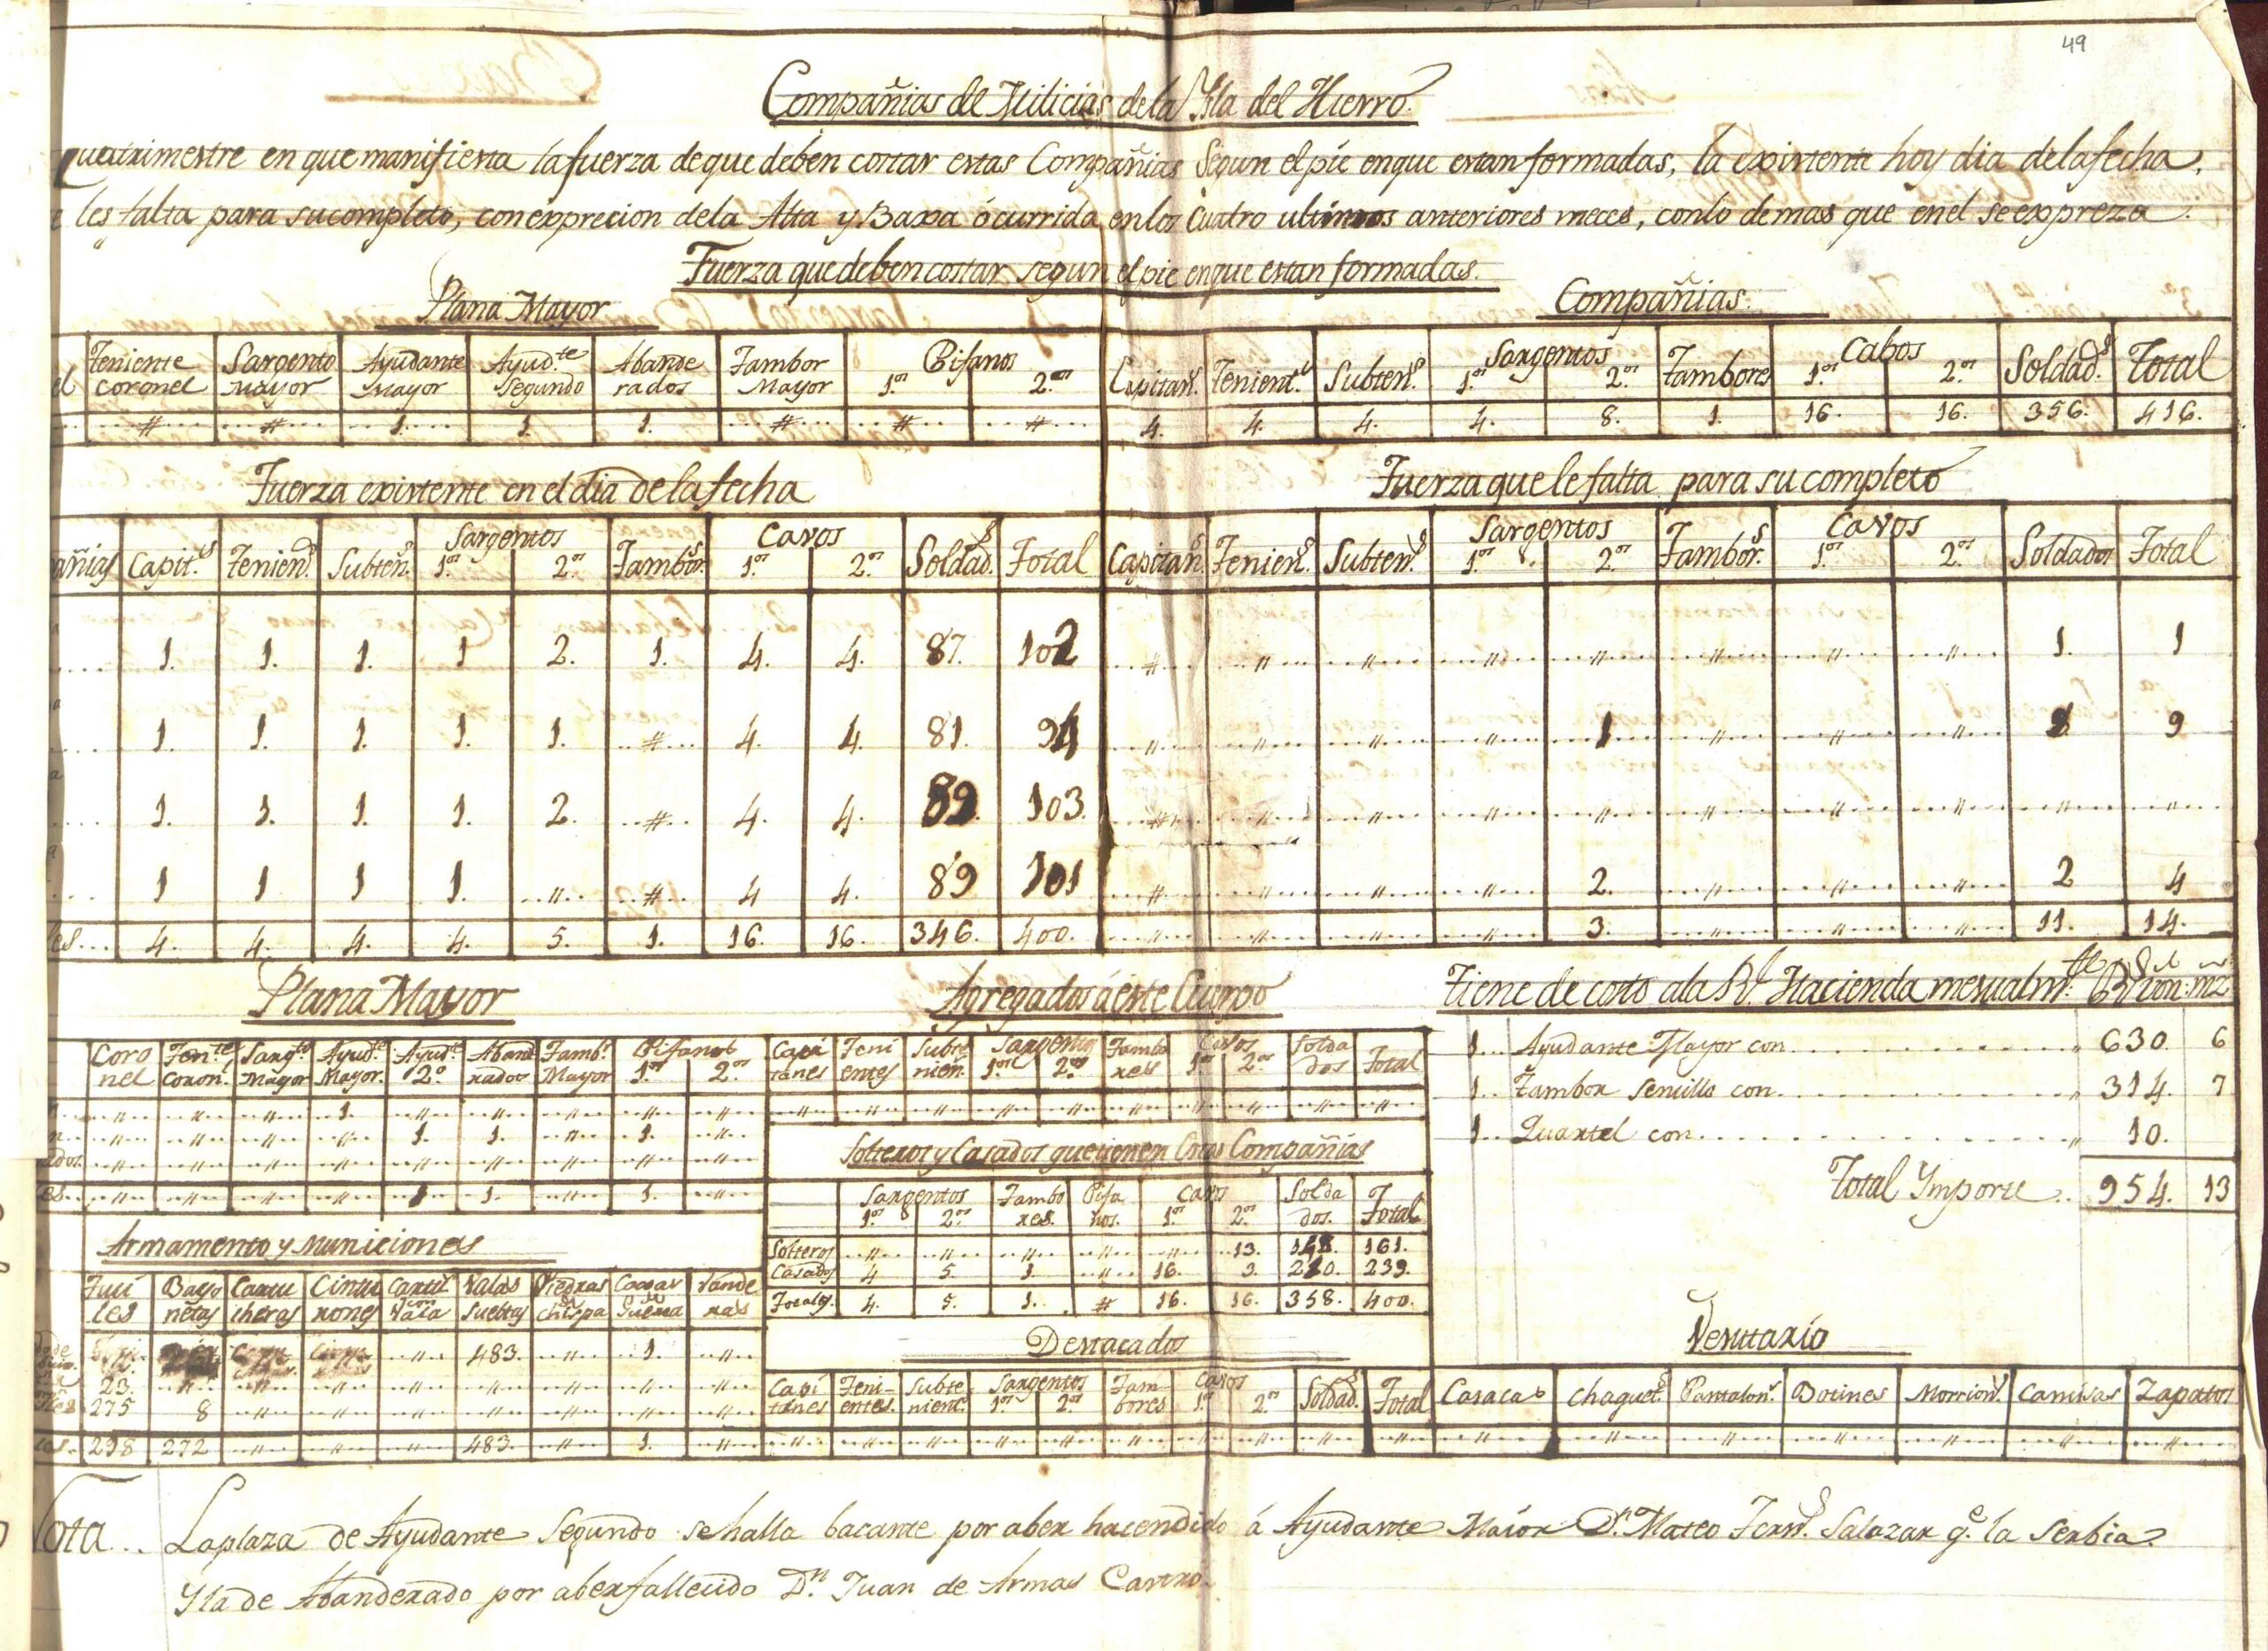 49
Compañias de Milicias de la Ysla del Hierro.
quatrimestre en que manifiesta la fuerza de que deben costar estas Compañias Segun el pie en que estan formadas, la existente hoy dia de la fecha,
les falta para su completo, con exprecion de la Alta y Baxa ócurrida en los Cuatro ultimos anteriores meces, con lo demas que en el se expreza.
Fuerza que deben costar segun el pie en que estan formadas.
Plana Mayor
Teniente coronel | Sargento mayor | Ayudante Mayor | Ayud.te Segundo | Abande rados | Tambor Mayor | Pifanos 1.os 2.os
# | # | 1. | 1. | 1. | # | # | #
Compañias.
Capitan.s | Tenient.s | Subten.s | Sargentos 1.os 2.os | Tambores | Cabos 1.os 2.os | Soldad.s | Total
4. | 4. | 4. | 4. | 8. | 1. | 16. | 16. | 356. | 416.
Fuerza existente en el dia de la fecha
añias | Capit.s | Tenien.s | Subten.s | Sargentos 1.os 2.os | Tambor.s | Cavos 1.os 2.os | Soldad.s | Total
1. | 1. | 1. | 1 | 2. | 1. | 4. | 4. | 87. | 102
1. | 1. | 1. | 1. | 1. | # | 4. | 4. | 81. | 94
1. | 1. | 1. | 1. | 2. | # | 4. | 4. | 89. | 103.
1 | 1 | 1 | 1. | " | # | 4 | 4. | 89 | 101
les... | 4. | 4. | 4. | 4. | 5. | 1. | 16. | 16. | 346. | 400.
Fuerza que le falta para su completo
Capitan.s | Tenien.s | Subten.s | Sargentos 1.os 2.os | Tambor.s | Cavos 1.os 2.os | Soldados | Total
# | " | " | " | " | " | " | " | 1. | 1
" | " | " | " | 1 | " | " | " | 8 | 9
# | " | " | " | " | " | " | " | " | "
# | " | " | " | 2. | " | " | " | 2 | 4
" | " | " | " | 3. | " | " | " | 11. | 14.
Plana Mayor
Coro nel | Ten.te coron.l | Sarg.to Mayor | Ayud.te Mayor. | Ayud.te 2.o | Aband rados | Tamb.r Mayor | Pifanos 1.os 2.os
" | " | " | 1. | " | " | " | " | "
" | " | " | " | 1. | 1. | " | 1. | "
ados. | " | " | " | " | " | " | " | " | "
es. | " | " | " | " | 1 | 1. | " | 1. | "
Agregados á este Cuerpo
Capi tanes | Teni entes | Subte nien. | Sargentos 1.os 2.os | Tambo res | Cavos 1.os 2.os | Solda dos | Total
" | " | " | " | " | " | " | " | " | "
Solteros y Casados que tienen Estas Compañias
Sargentos 1.os 2.os | Tambo res. | Pifa nos. | Cavos 1.os 2.os | Solda dos. | Total
Solteros | " | " | " | " | " | 13. | 148. | 161.
Casados | 4 | 5. | 1. | " | 16. | 3. | 210. | 239.
Totales. | 4. | 5. | 1. | # | 16. | 16. | 358. | 400.
Tiene de costo a la R.l Hacienda mesualm.te R.s von. mrs
1... Ayudante Mayor con " 630. 6
1... Tambor Sencillo con " 314. 7
1... Quartel con " 10.
Total Ymporte.. 954. 13
Armamento y Municiones
Fusi les | Bayo netas | Cartu cheras | Cintu rones | Cartu.s con Vala | Valas Sueltas | Piedras de chispa | Caxas de Guerra | Vande ras
" | 483. | " | 1. | "
23. | " | " | " | " | " | " | " | "
275 | 8 | " | " | " | " | " | " | "
es. | 298 | 272 | " | " | " | 483. | " | 1. | "
Destacados
Capi tanes | Teni- entes. | Subte nient.s | Sargentos 1.os 2.os | Tam- bores | Cavos 1.os 2.os | Soldad.s | Total
" | " | " | " | " | " | " | " | " | "
Vestuario
Casacas | Chaquet.s | Pantalon.s | Botines | Morrion.s | Camisas | Zapatos
" | " | " | " | " | " | "
Nota... La plaza de Ayudante Segundo se halla bacante por aber hacendido á Ayudante Maior D.n Mateo Fern.s Salazar q.e la Serbia.
Y la de Abanderado por aber fallecido D.n Juan de Armas Castro.